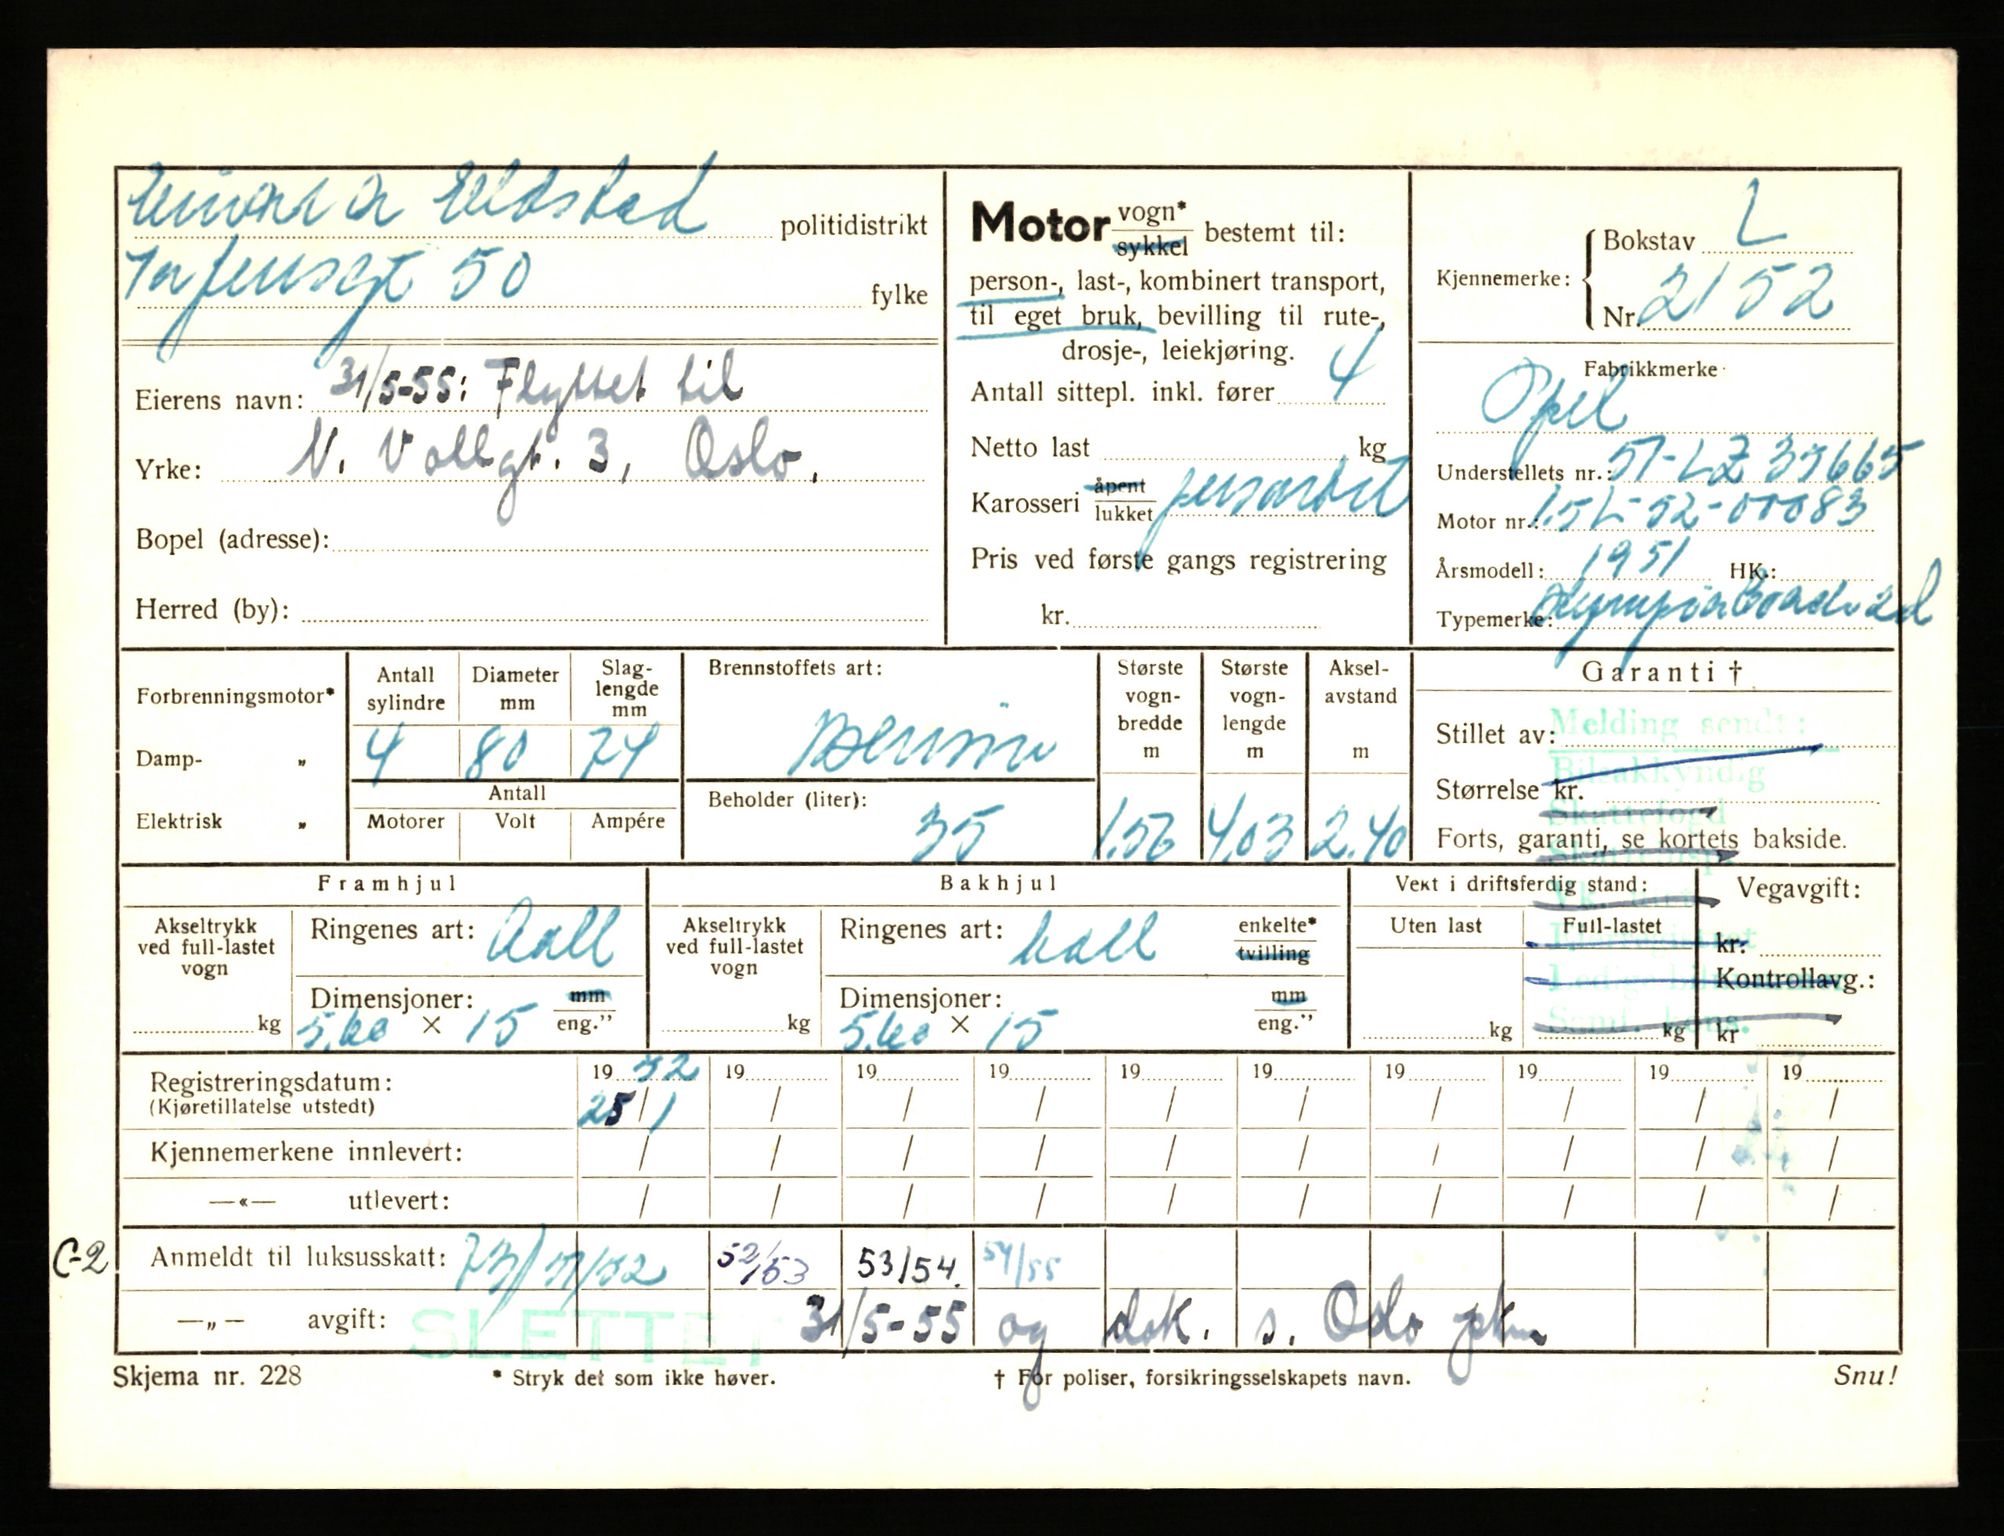 Eldstad politidistrikt
50 fylke
Eierens navn: 31/5-55: Flyttet til
Yrke: N. Vollgt. 3, Oslo.
Bopel (adresse):
Herred (by):
Motor vogn* sykkel bestemt til:
person-, last-, kombinert transport,
til eget bruk, bevilling til rute-,
drosje-, leiekjøring.
Antall sittepl. inkl. fører 4
Netto last kg
Karosseri åpent lukket
Pris ved første gangs registrering
kr.
Kjennemerke: Bokstav L
Nr. 2152
Fabrikkmerke
Opel
Understellets nr.: 51-LZ 35665
Motor nr.: 1.5L-52-00083
Årsmodell: 1951 HK.:
Typemerke: Olympia
Forbrenningsmotor*
Damp- "
Elektrisk "
Antall sylindre 4
Diameter mm 80
Slaglengde mm 74
Antall
Motorer Volt Ampére
Brennstoffets art:
Bensin
Beholder (liter): 35
Største vogn-bredde m 1.56
Største vogn-lengde m 4.03
Aksel-avstand m 2.40
Garanti †
Stillet av:
Størrelse kr.
Forts, garanti, se kortets bakside.
Melding sendt:
Bilsakkyndig
Skattefogd
Framhjul
Akseltrykk ved full-lastet vogn kg
Ringenes art:
Dimensjoner: 5.60 × 15 mm eng."
Bakhjul
Akseltrykk ved full-lastet vogn kg
Ringenes art: enkelte* tvilling
Dimensjoner: 5.60 × 15 mm eng."
Vekt i driftsferdig stand:
Uten last kg
Full-lastet kg
Vegavgift:
kr.
Kontrollavg.:
kr
Registreringsdatum: 19 52 19 19 19 19 19 19 19 19 19
(Kjøretillatelse utstedt) 25/1 / / / / / / / / /
Kjennemerkene innlevert: / / / / / / / / / /
—«— utlevert: / / / / / / / / / /
C-2 Anmeldt til luksusskatt: 51/52 52/53 53/54. 54/55
—„— avgift: 31/5-55 og dok. s. Oslo
SLETTET
Skjema nr. 228
* Stryk det som ikke høver.
† For poliser, forsikringsselskapets navn.
Snu!